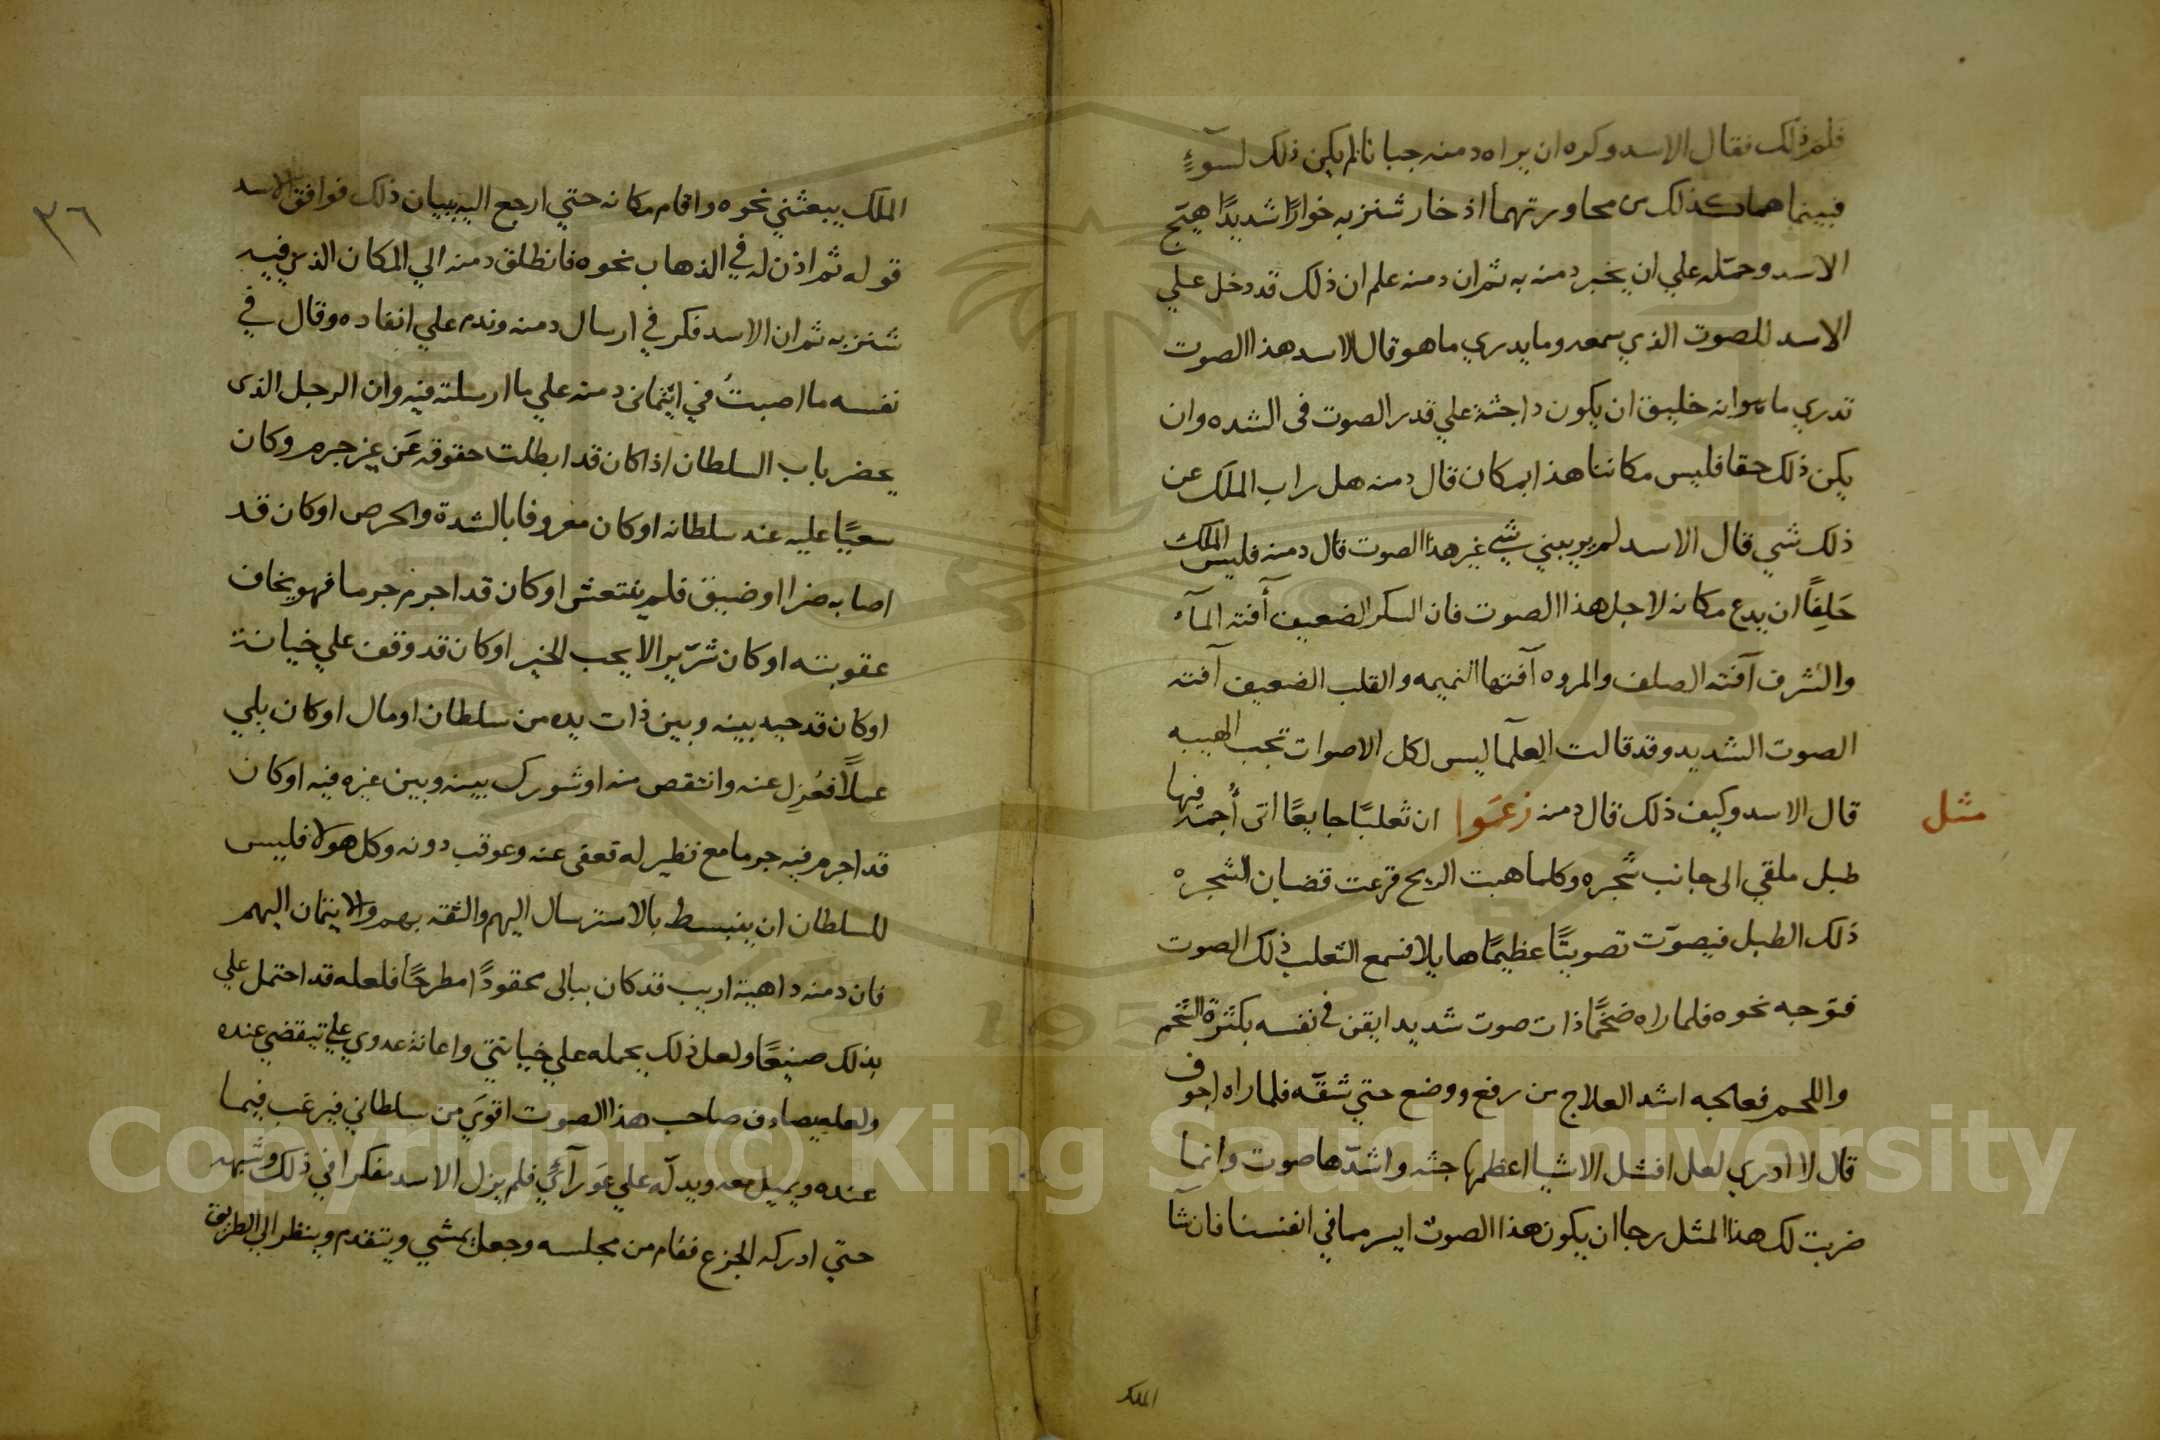 فلم ذلك فقال الاسد وكره ان يراه دمنه جبانا لم يكن ذلك لسوءٍ
فبينما هما كذلك من محاورتهما اذ خار شنزبه خوارًا شديدًا هيّج
الاسد وحمّله علي ان يخبر دمنه به ثم ان دمنه علم ان ذلك قد دخل علي
الاسد للصوت الذي سمعه وما يدري ما هو قال الاسد هذا الصوت
تدري ما هو وانه خليق ان يكون ذا جثة علي قدر الصوت في الشده وان
يكن ذلك حقا فليس مكاننا هذا بمكان قال دمنه هل راب الملك عن
ذلك شي قال الاسد لم يريبني شي غير هذا الصوت قال دمنه فليس الملك
خَلِقًا ان يدع مكانه لاجل هذا الصوت فان السكر الضعيف آفته المآء
والشرف آفته الصلف والمروه آفتها النميمه والقلب الضعيف آفته
الصوت الشديد وقد قالت العلمآ ليس لكل الاصوات تجب الهيبه
مثل
قال الاسد وكيف ذلك قال دمنه زعَموا ان ثعلبًا جايعًا اتى أجمة فيها
طبل ملقي الى جانب شجره وكلما هبت الريح قرعت قضبان الشجره
ذلك الطبل فيصوّت تصويتًا عظيمًا هايلا فسمع الثعلب ذلك الصوت
فتوجه نحوه فلما راه ضخمًا ذات صوت شديد ايقن في نفسه بكثرة الشحم
واللحم فعالجه اشد العلاج من رفع ووضع حتي شقّه فلما راه اجوف
قال لا ادري لعل افشل الاشيا اعظمها جثه واشدّها صوت وانما
ضربت لك هذا المثل رجا ان يكون هذا الصوت ايسر مما في انفسنا فان شآ
الملك
٣٦
الملك يبعثني نحوه واقام مكانه حتي ارجع اليه ببيان ذلك فوافق الاسد
قوله ثم اذن له في الذهاب نحوه فانطلق دمنه الي المكان الذي فيه
شنزبه ثم ان الاسد فكر في ارسال دمنه وندم علي انفاده وقال في
نفسه ما اصبتُ في ايتماني دمنه علي ما ارسلته فيه وان الرجل الذي
يحضر باب السلطان اذا كان قد ابطلت حقوقه عَن غير جرم وكان
سعيًا عليه عند سلطانه او كان معروفا بالشدة والحرص او كان قد
اصابه ضرا او ضيق فلم ينتعش او كان قد اجرم جرما فهو يخاف
عقوبته او كان شرّيرا لا يحب الخير او كان قد وقف علي خيانة
او كان قد حيد بينه وبين ذات يده من سلطان او مال او كان يلي
عملاً فعُزِل عنه وانتقص منه او شورك بينه وبين غيره فيه او كان
قد اجرم فيه جرما مع نظير له فعفى عنه وعوقب دونه وكل هولا فليس
للسلطان ان ينبسط بالاسترسال اليهم والثقه بهم والايتمان اليهم
فان دمنه داهية اريب قد كان ببابى محقودًا مطرحًا فلعله قد احتمل علي
بذلك صنيعًا ولعل ذلك يحمله علي خيانتي واعانة عدوي علي تبقضي عنده
ولعله يصادف صاحب هذا الصوت اقوَي من سلطاني فيرغب فيما
عنده ويميل معه ويدلّه علي عوَرآئي فلم يزل الاسد مفكرا في ذلك وشبهه
حتي ادركه الجزع فقام من مجلسه وجعل يمشي ويتقدم وينظر الي الطريق
Copyright © King Saud University